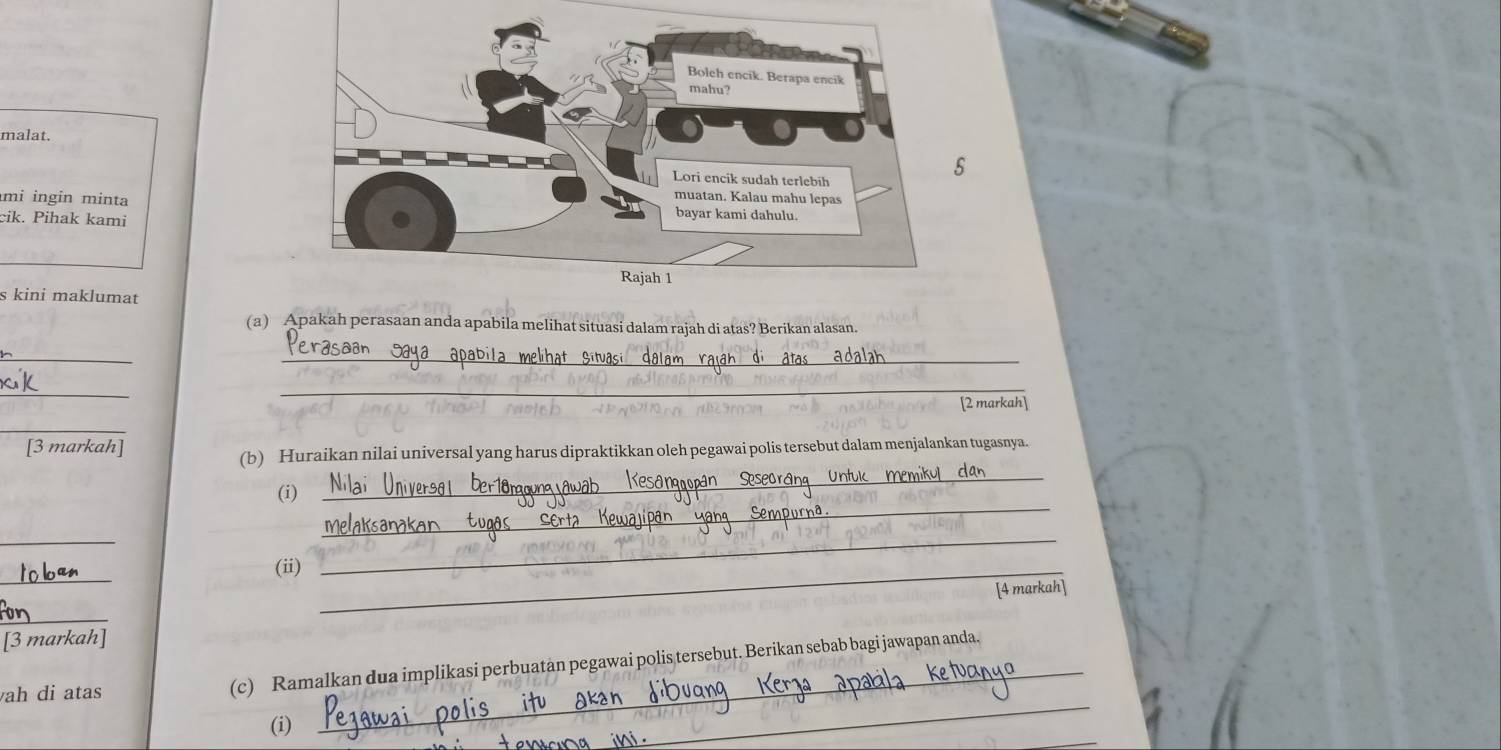 malat.
mi ingin minta
cik. Pihak kami
s kini maklumat
kik
[3 markah]
[3 markah]
ah di atas
Boleh encik. Berapa encik
mahu?
Lori encik sudah terlebih
muatan. Kalau mahu lepas
bayar kami dahulu.
5
Rajah 1
(a) Apakah perasaan anda apabila melihat situasi dalam rajah di atas? Berikan alasan.
Perasaan saya apabila melihat situasi dalam rajah di atas adalah
[2 markah]
(b) Huraikan nilai universal yang harus dipraktikkan oleh pegawai polis tersebut dalam menjalankan tugasnya.
(i) Nilai Universal bertanggungjawab kesanggopan seseorang untuk memikul dan
melaksanakan tugas serta kewajipan yang sempurna.
(ii)
[4 markah]
(c) Ramalkan dua implikasi perbuatan pegawai polis tersebut. Berikan sebab bagi jawapan anda.
(i) Pegawai polis itu akan dibuang kerja apabila ketuanya
tentang ini.